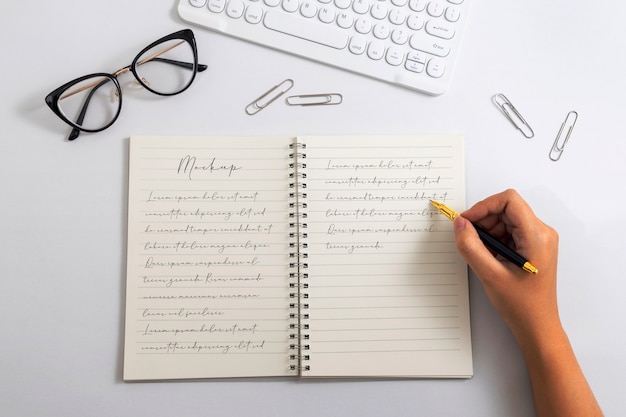 Mockup
Lorem ipsum dolor sit amet
consectetur adipiscing elit sed
do eiusmod tempor incididunt ut
labore et dolore magna aliqua.
Quis ipsum suspendisse ul-
trices gravida. Risus commodo
viverra maecenas accumsan
lacus vel facilisis.
Lorem ipsum dolor sit amet
consectetur adipiscing elit sed
Lorem ipsum dolor sit amet,
consectetur adipiscing elit sed
do eiusmod tempor incididunt ut
labore et dolore magna aliqua.
Quis ipsum suspendisse ul-
trices gravida.